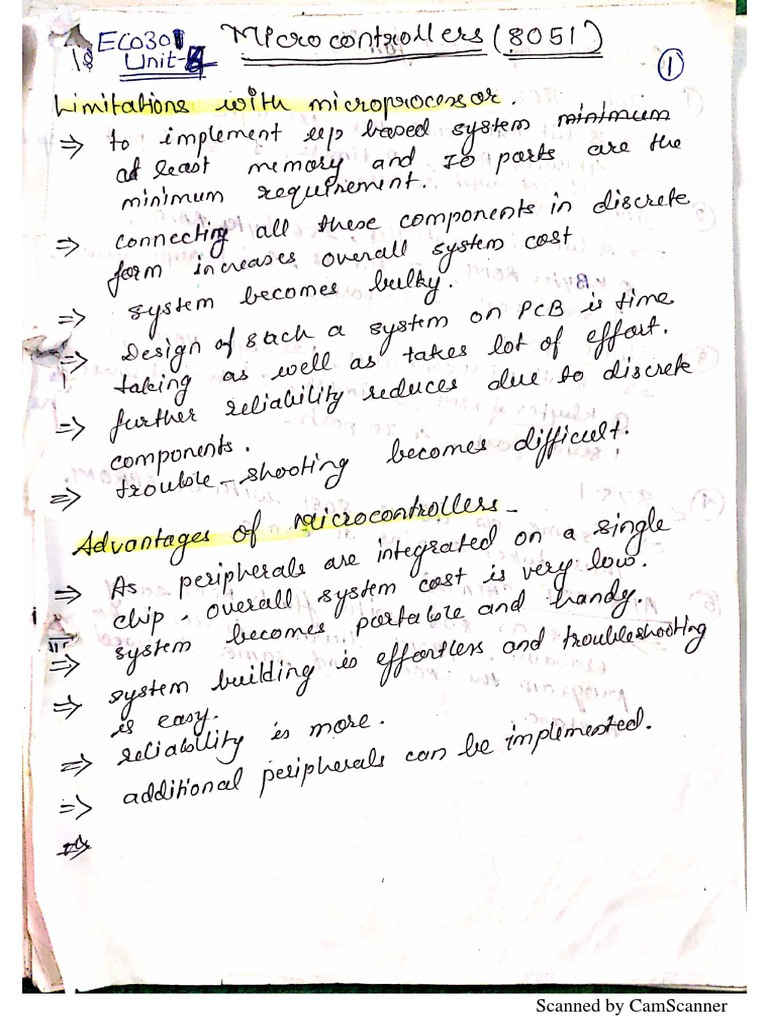 ECO301 Microcontrollers (8051)
Unit-
1
Limitations with microprocessor.
⇒ to implement up based system minimum
at least memory and IO ports are the
minimum requirement.
⇒ connecting all these components in discrete
form increases overall system cost
⇒ system becomes bulky.
⇒ Design of such a system on PCB is time
taking as well as takes lot of effort.
⇒ further reliability reduces due to discrete
components.
⇒ trouble-shooting becomes difficult.
Advantages of Microcontrollers -
⇒ As peripherals are integrated on a single
chip, overall system cost is very low.
⇒ system becomes portable and handy.
⇒ system building is effortless and troubleshooting
is easy.
⇒ reliability is more.
⇒ additional peripherals can be implemented.
⇒
Scanned by CamScanner